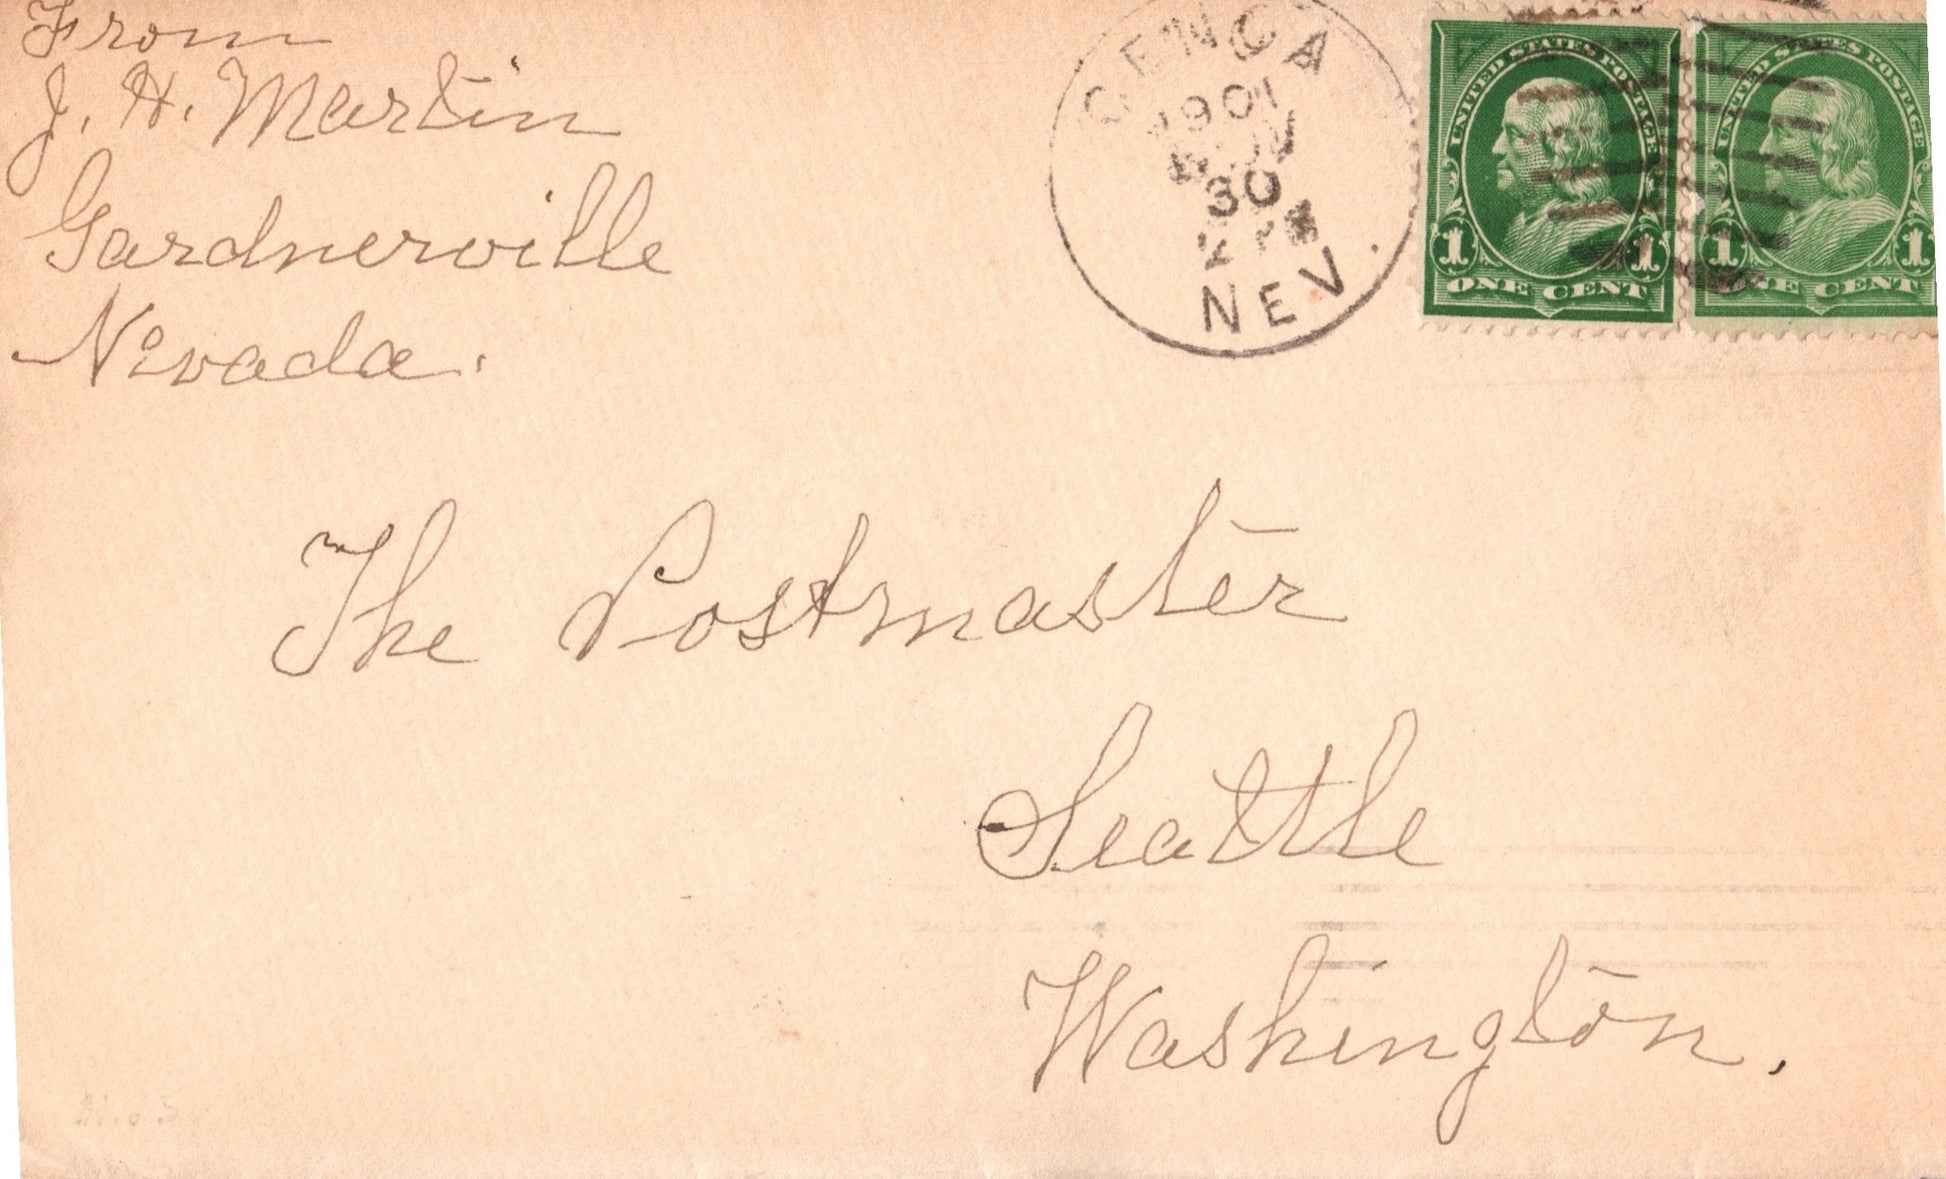 From
J. H. Martin
Gardnerville
Nevada.
GENOA
1901
30
NEV.
UNITED STATES POSTAGE
1 1
ONE CENT
UNITED STATES POSTAGE
1 1
ONE CENT
The Postmaster
Seattle
Washington.